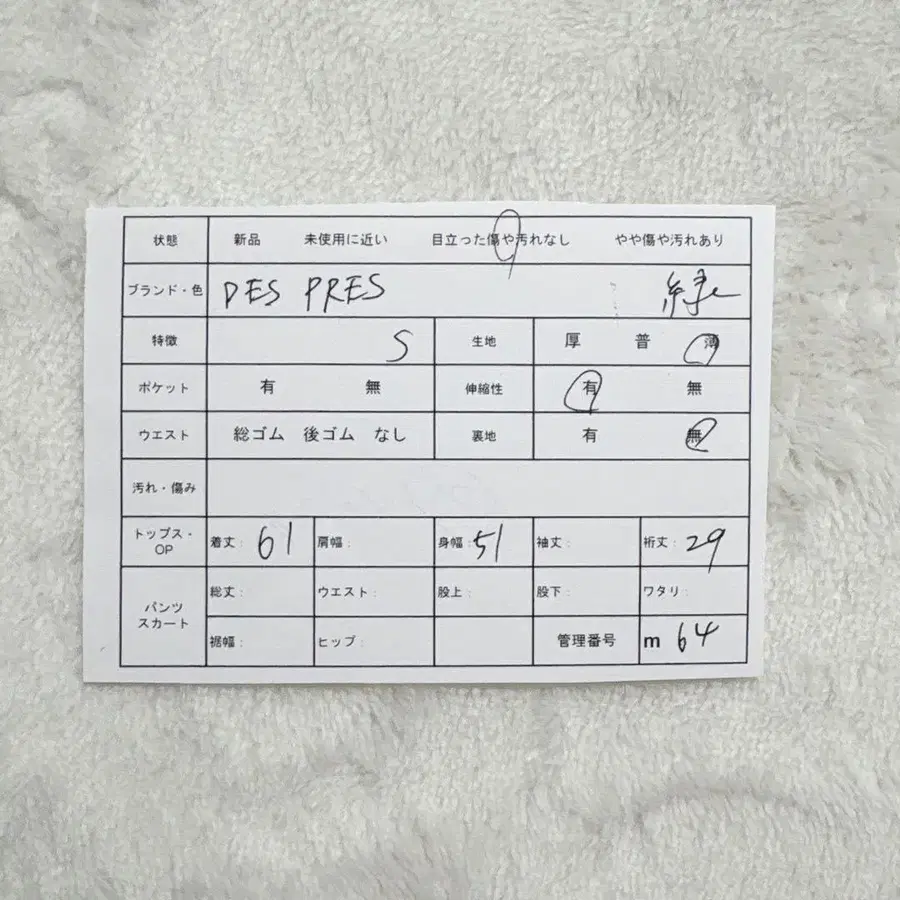 状態 新品 未使用に近い 目立った傷や汚れなし やや傷や汚れあり
ブランド・色 DES PRES 緑
特徴 S 生地 厚 普 薄
ポケット 有 無 伸縮性 有 無
ウエスト 総ゴム 後ゴム なし 裏地 有 無
汚れ・傷み
トップス・OP 着丈: 61 肩幅: 身幅: 51 袖丈: 裄丈: 29
パンツ スカート 総丈: ウエスト: 股上: 股下: ワタリ:
裾幅: ヒップ: 管理番号 m 64